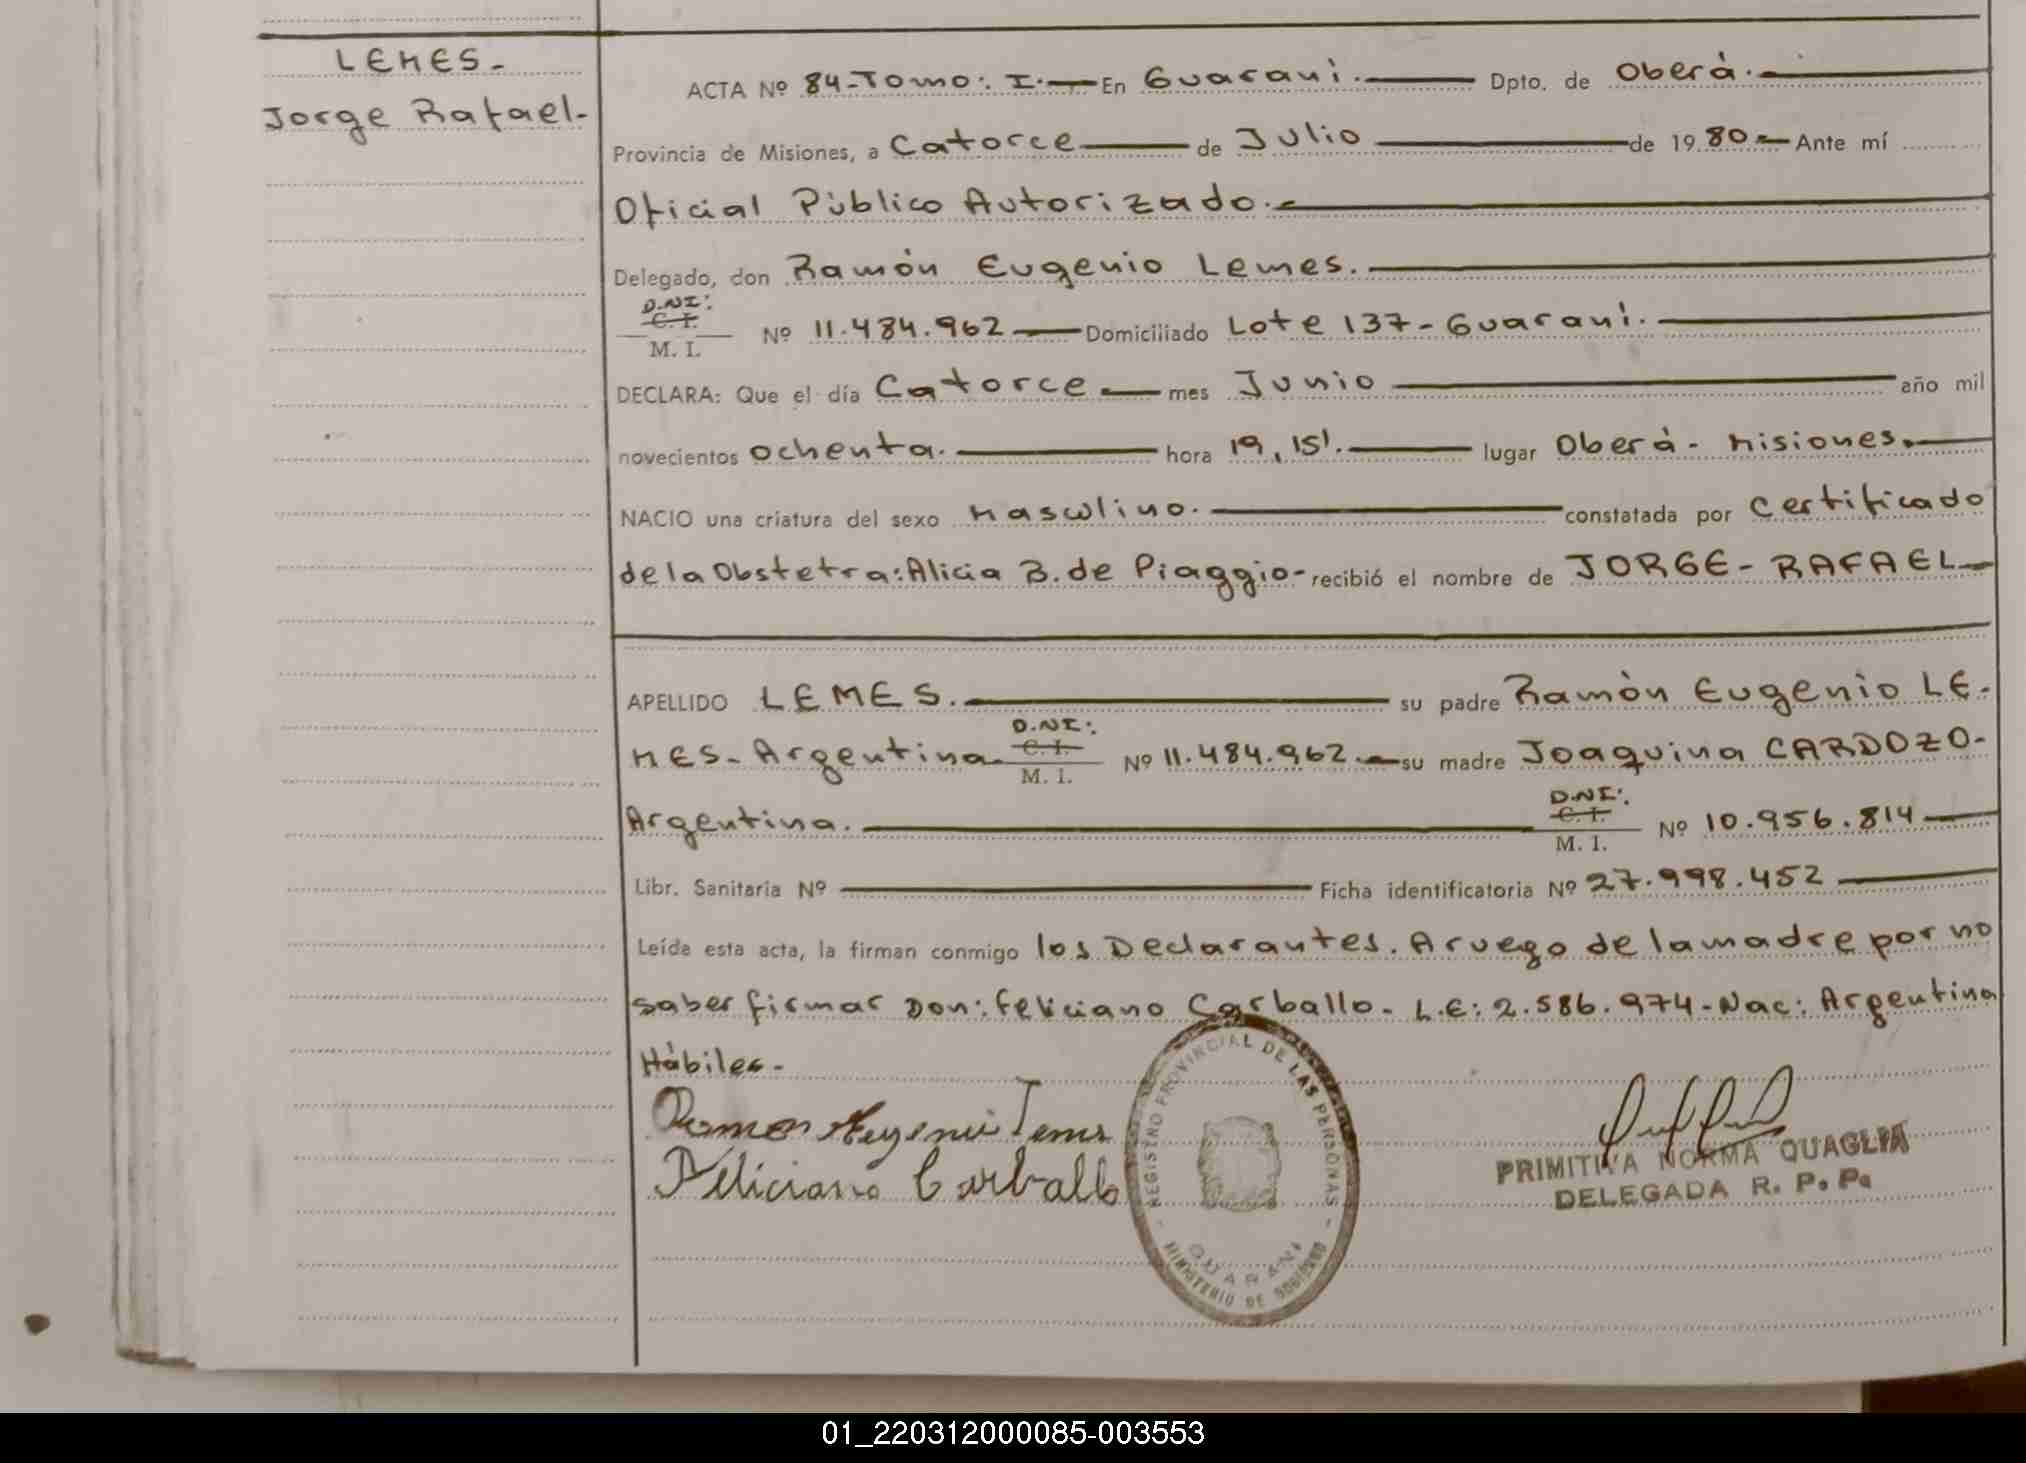 LEMES-
Jorge Rafael-
ACTA Nº 84-Tomo: I.- En Guaraní. Dpto. de Oberá.
Provincia de Misiones, a Catorce de Julio de 1980- Ante mí
Oficial Público Autorizado.-
Delegado, don Ramón Eugenio Lemes.
D.NI:
C. I.
M. I.
Nº 11.484.962 Domiciliado Lote 137-Guaraní.
DECLARA: Que el día Catorce mes Junio año mil
novecientos ochenta. hora 19,15'. lugar Oberá- Misiones.
NACIO una criatura del sexo Masculino. constatada por Certificado
de la Obstetra: Alicia B. de Piaggio- recibió el nombre de JORGE-RAFAEL
APELLIDO LEMES. su padre Ramón Eugenio LE-
MES- Argentina D.NI: C. I. M. I. Nº 11.484.962.- su madre Joaquina CARDOZO-
Argentina. D.NI: C. I. M. I. Nº 10.956.814
Libr. Sanitaria Nº Ficha identificatoria Nº 27.998.452
Leída esta acta, la firman conmigo los Declarantes. A ruego de la madre por no
saber firmar Don: Feliciano Carballo- L.E: 2.586.974-Nac: Argentina
Hábiles-
Feliciano Carballo
REGISTRO PROVINCIAL DE LAS PERSONAS
GUARANI
MINISTERIO DE GOBIERNO
PRIMITIVA NORMA QUAGLIA
DELEGADA R. P. P.
01_220312000085-003553